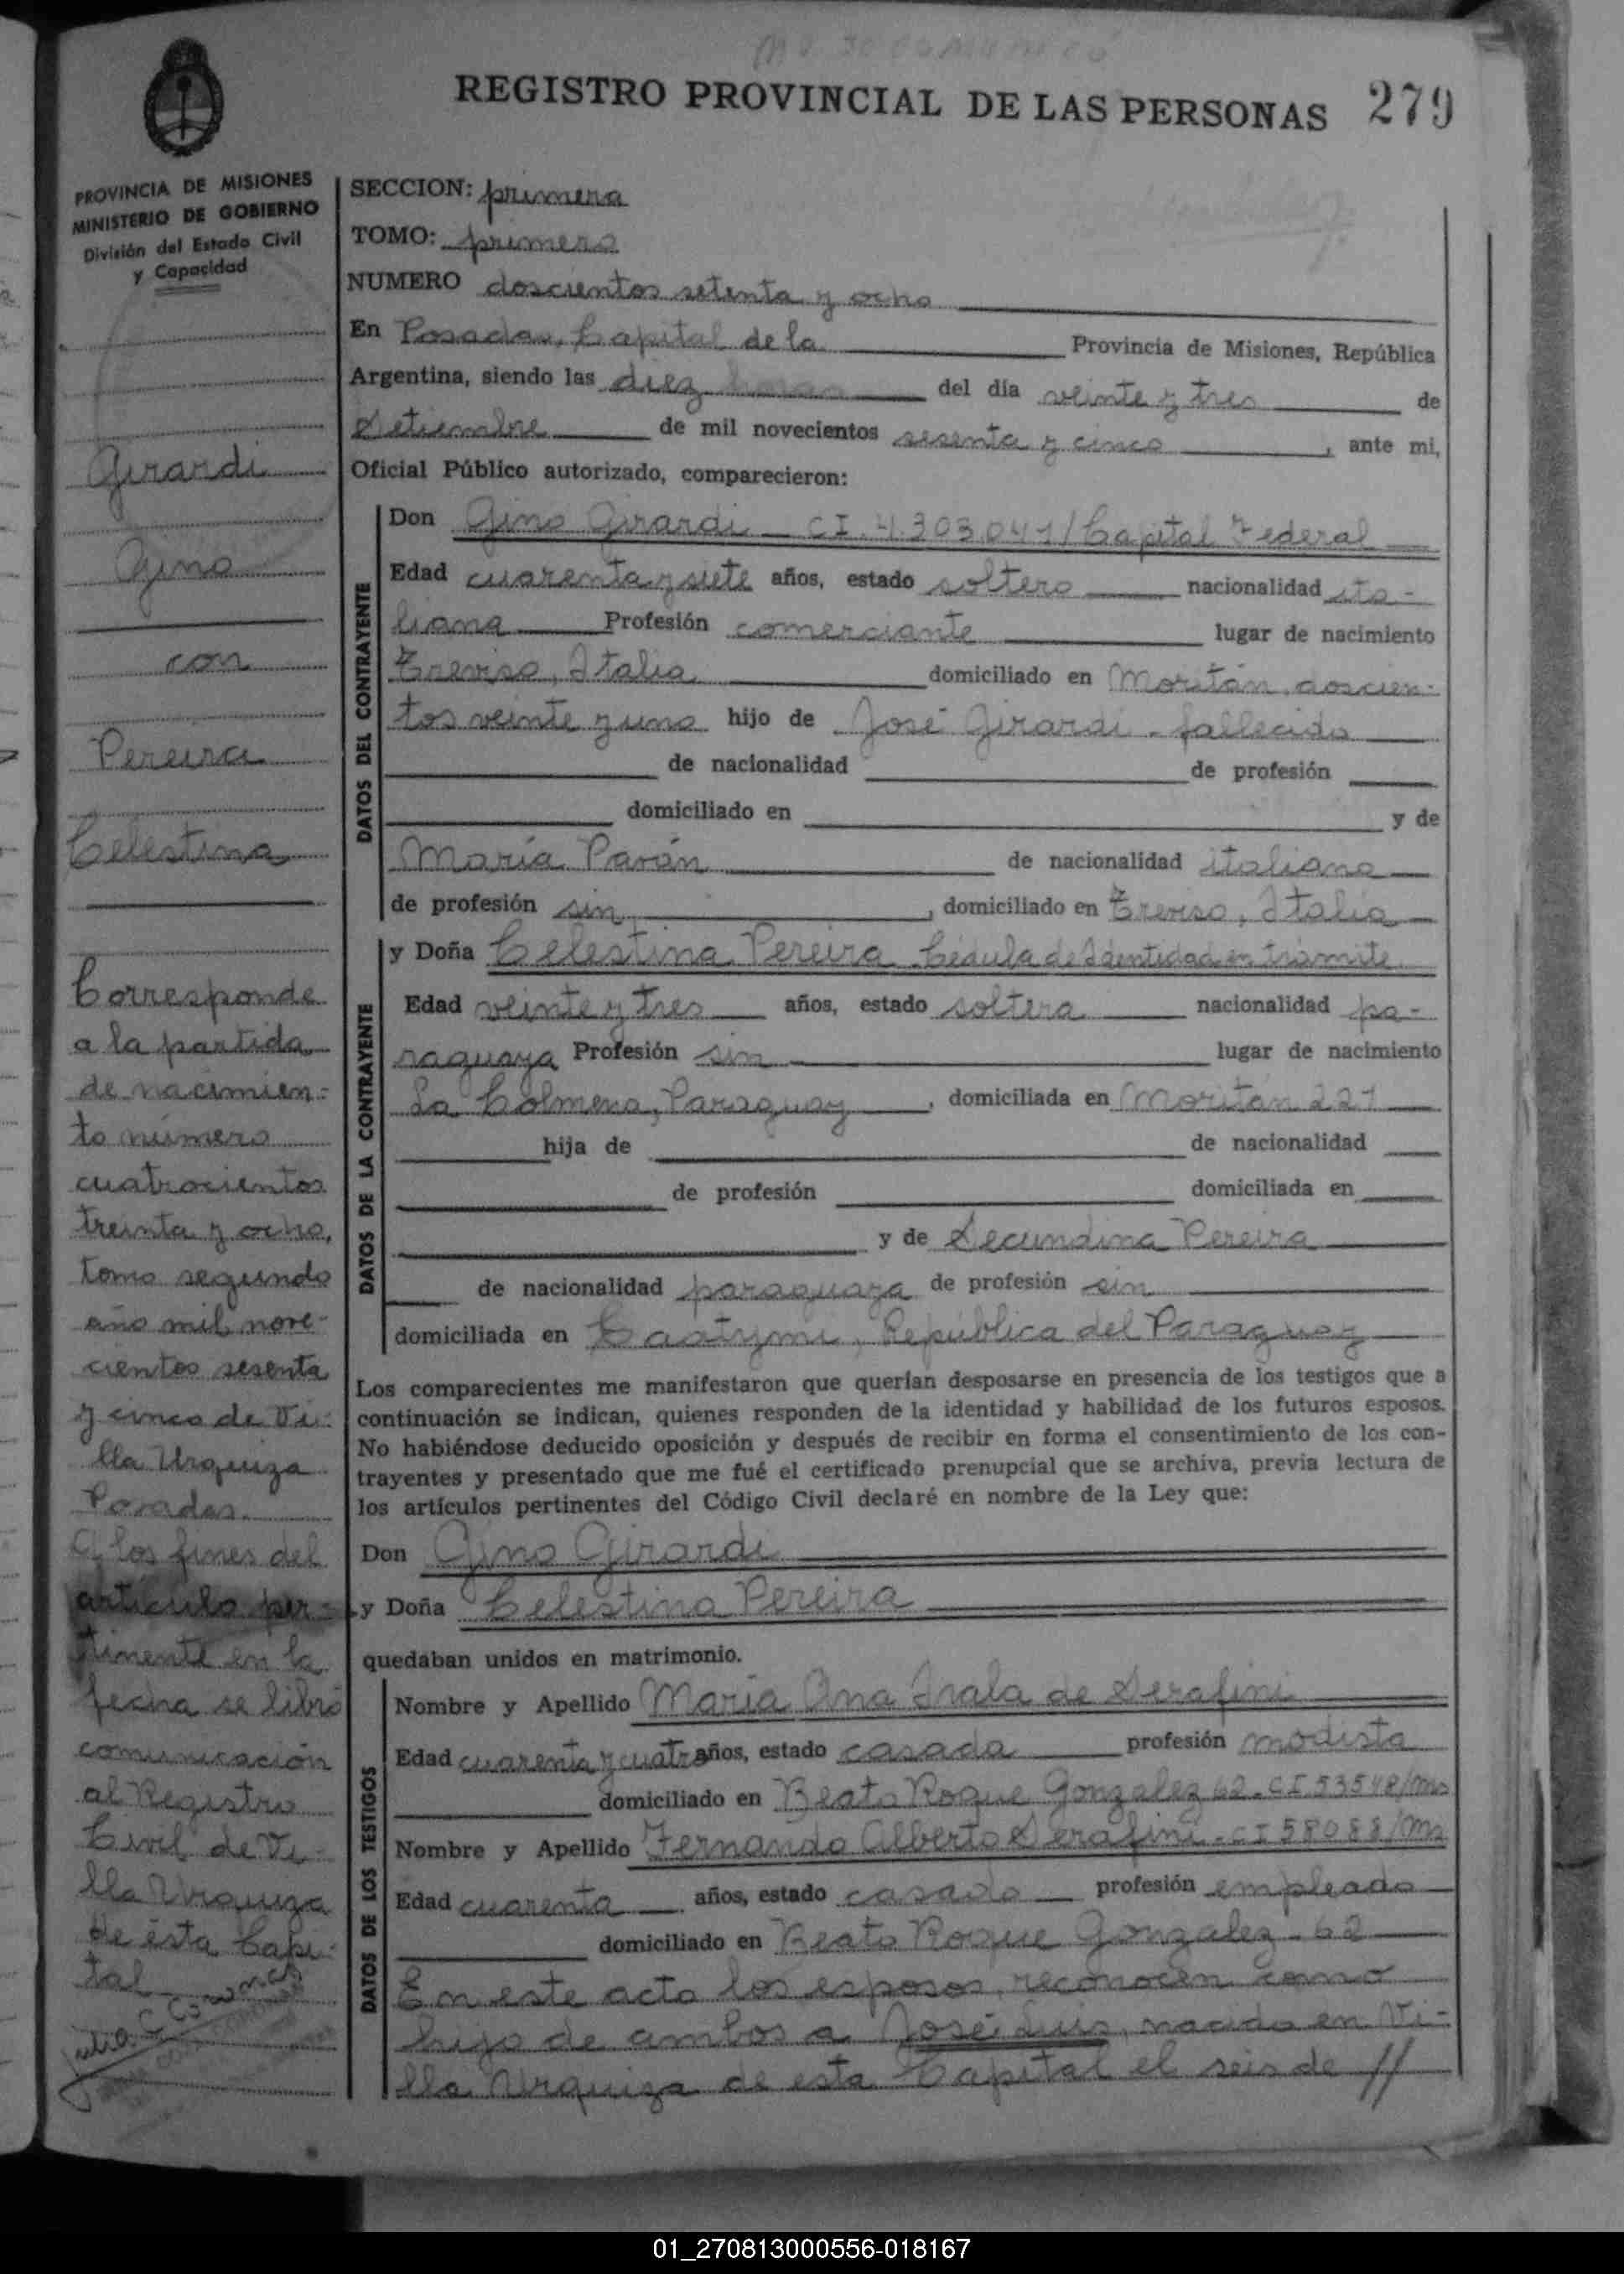 REGISTRO PROVINCIAL DE LAS PERSONAS 279
PROVINCIA DE MISIONES
MINISTERIO DE GOBIERNO
División del Estado Civil
y Capacidad
Girardi
Gino
con
Pereira
Celestina
Corresponde
a la partida
de nacimien-
to número
cuatrocientos
treinta y ocho,
tomo segundo
año mil nove-
cientos sesenta
y cinco de Vi-
lla Urquiza
Posadas.
A los fines del
artículo per-
tinente en la
fecha se libró
comunicación
al Registro
Civil de Vi-
lla Urquiza
de ésta Capi-
tal
SECCION: primera
TOMO: primero
NUMERO doscientos setenta y ocho
En Posadas, Capital de la Provincia de Misiones, República
Argentina, siendo las diez horas del día veinte y tres de
Setiembre de mil novecientos sesenta y cinco, ante mi,
Oficial Público autorizado, comparecieron:
DATOS DEL CONTRAYENTE
Don Gino Girardi - CI. 4.303.041/Capital Federal
Edad cuarenta y siete años, estado soltero nacionalidad ita-
liana Profesión comerciante lugar de nacimiento
Treviso, Italia domiciliado en Moritán doscien-
tos veinte y uno hijo de José Girardi - fallecido
de nacionalidad de profesión
domiciliado en y de
María Pavan de nacionalidad italiana
de profesión sin, domiciliado en Treviso, Italia
DATOS DE LA CONTRAYENTE
y Doña Celestina Pereira Cédula de Identidad en trámite
Edad veinte y tres años, estado soltera nacionalidad pa-
raguaya Profesión sin lugar de nacimiento
La Colmena, Paraguay, domiciliada en Moritán 221
hija de de nacionalidad
de profesión domiciliada en
y de Secundina Pereira
de nacionalidad paraguaya de profesión sin
domiciliada en República del Paraguay
Los comparecientes me manifestaron que querían desposarse en presencia de los testigos que a
continuación se indican, quienes responden de la identidad y habilidad de los futuros esposos.
No habiéndose deducido oposición y después de recibir en forma el consentimiento de los con-
trayentes y presentado que me fué el certificado prenupcial que se archiva, previa lectura de
los artículos pertinentes del Código Civil declaré en nombre de la Ley que:
Don Gino Girardi
y Doña Celestina Pereira
quedaban unidos en matrimonio.
DATOS DE LOS TESTIGOS
Nombre y Apellido María Ana Irala de Serafini
Edad cuarenta y cuatro años, estado casada profesión modista
domiciliado en Beato Roque Gonzalez 62 - CI 53548/Ms
Nombre y Apellido Fernando Alberto Serafini - CI 58088/Ms
Edad cuarenta años, estado casado profesión empleado
domiciliado en Beato Roque Gonzalez - 62
En este acto los esposos, reconocen como
hijo de ambos a José Luis, nacido en Vi-
lla Urquiza de esta Capital el seis de //
01_270813000556-018167